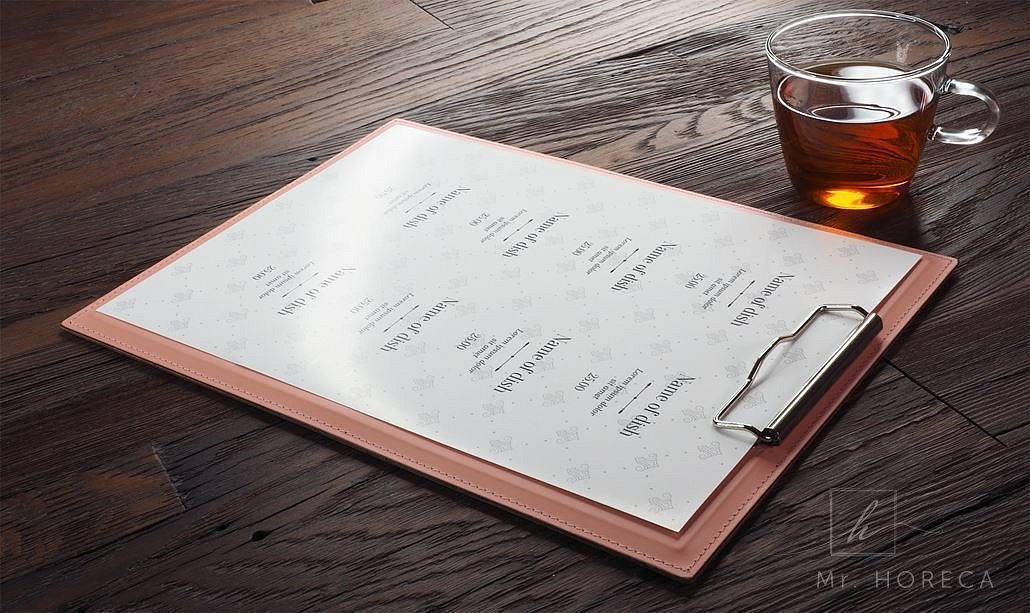 Name of dish
Lorem ipsum dolor
sit amet
25.00
Name of dish
Lorem ipsum dolor
sit amet
25.00
Name of dish
Lorem ipsum dolor
sit amet
25.00
Name of dish
Lorem ipsum dolor
sit amet
25.00
Name of dish
Lorem ipsum dolor
sit amet
25.00
Name of dish
Lorem ipsum dolor
sit amet
25.00
Name of dish
Lorem ipsum dolor
sit amet
Name of dish
Lorem ipsum dolor
sit amet
25.00
h
Mr. HORECA